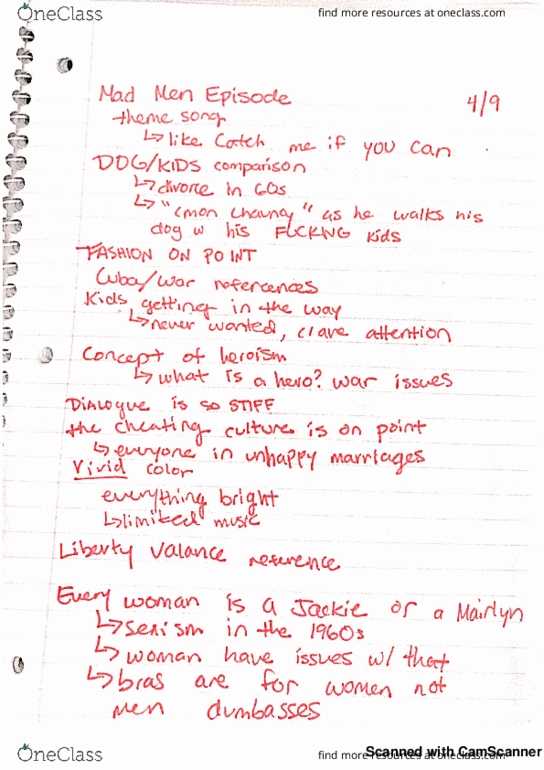 OneClass
find more resources at oneclass.com
Mad Men Episode 4/9
theme song
↳ like Catch me if you can
DOG/KIDS comparison
↳ divorce in 60s
↳ "c'mon Chauncy" as he walks his
dog w his FUCKNG kids
FASHION ON POINT
Cuba/War references
Kids getting in the way
↳ never wanted, crave attention
Concept of heroism
↳ what is a hero? war issues
Dialogue is so STIFF
the cheating culture is on point
↳ everyone in unhappy marriages
Vivid color
everything bright
↳ limited music
Liberty Valance reference
Every woman is a Jackie or a Mairlyn
↳ sexism in the 1960s
↳ woman have issues w/ that
↳ bras are for women not
men dumbasses
OneClass
find more resources at oneclass.com
Scanned with CamScanner